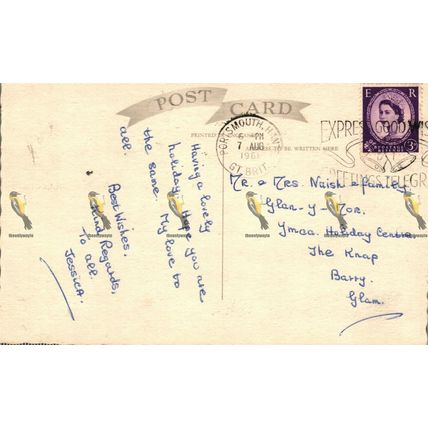 POST CARD
PRINTED IN ENGLAND
TO BE WRITTEN HERE
PORTSMOUTH, HANTS
6 - PM
7 AUG
1961
GT. BRIT.
EXPRESS GOOD WIS
GREETINGS TELEGR
E R
POSTAGE REVENUE
3D
Having a lovely
holiday. Hope you are
the same. My love to
all.
Best Wishes.
Kind Regards.
To all.
Jessica.
Mr. & Mrs. Naish & family
Glan-y-Mor.
Ymca. Holiday Centre
The Knap
Barry.
Glam.
theonlywayto
theonlywayto
theonlywayto
theonlywayto
theonlywayto
theonlywayto
theonlywayto
theonlywayto